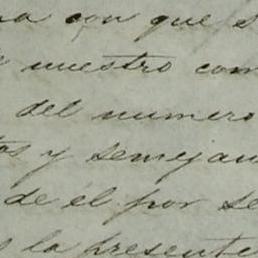 con que
nuestro com
del numero
y semejan
de él por se
la presente